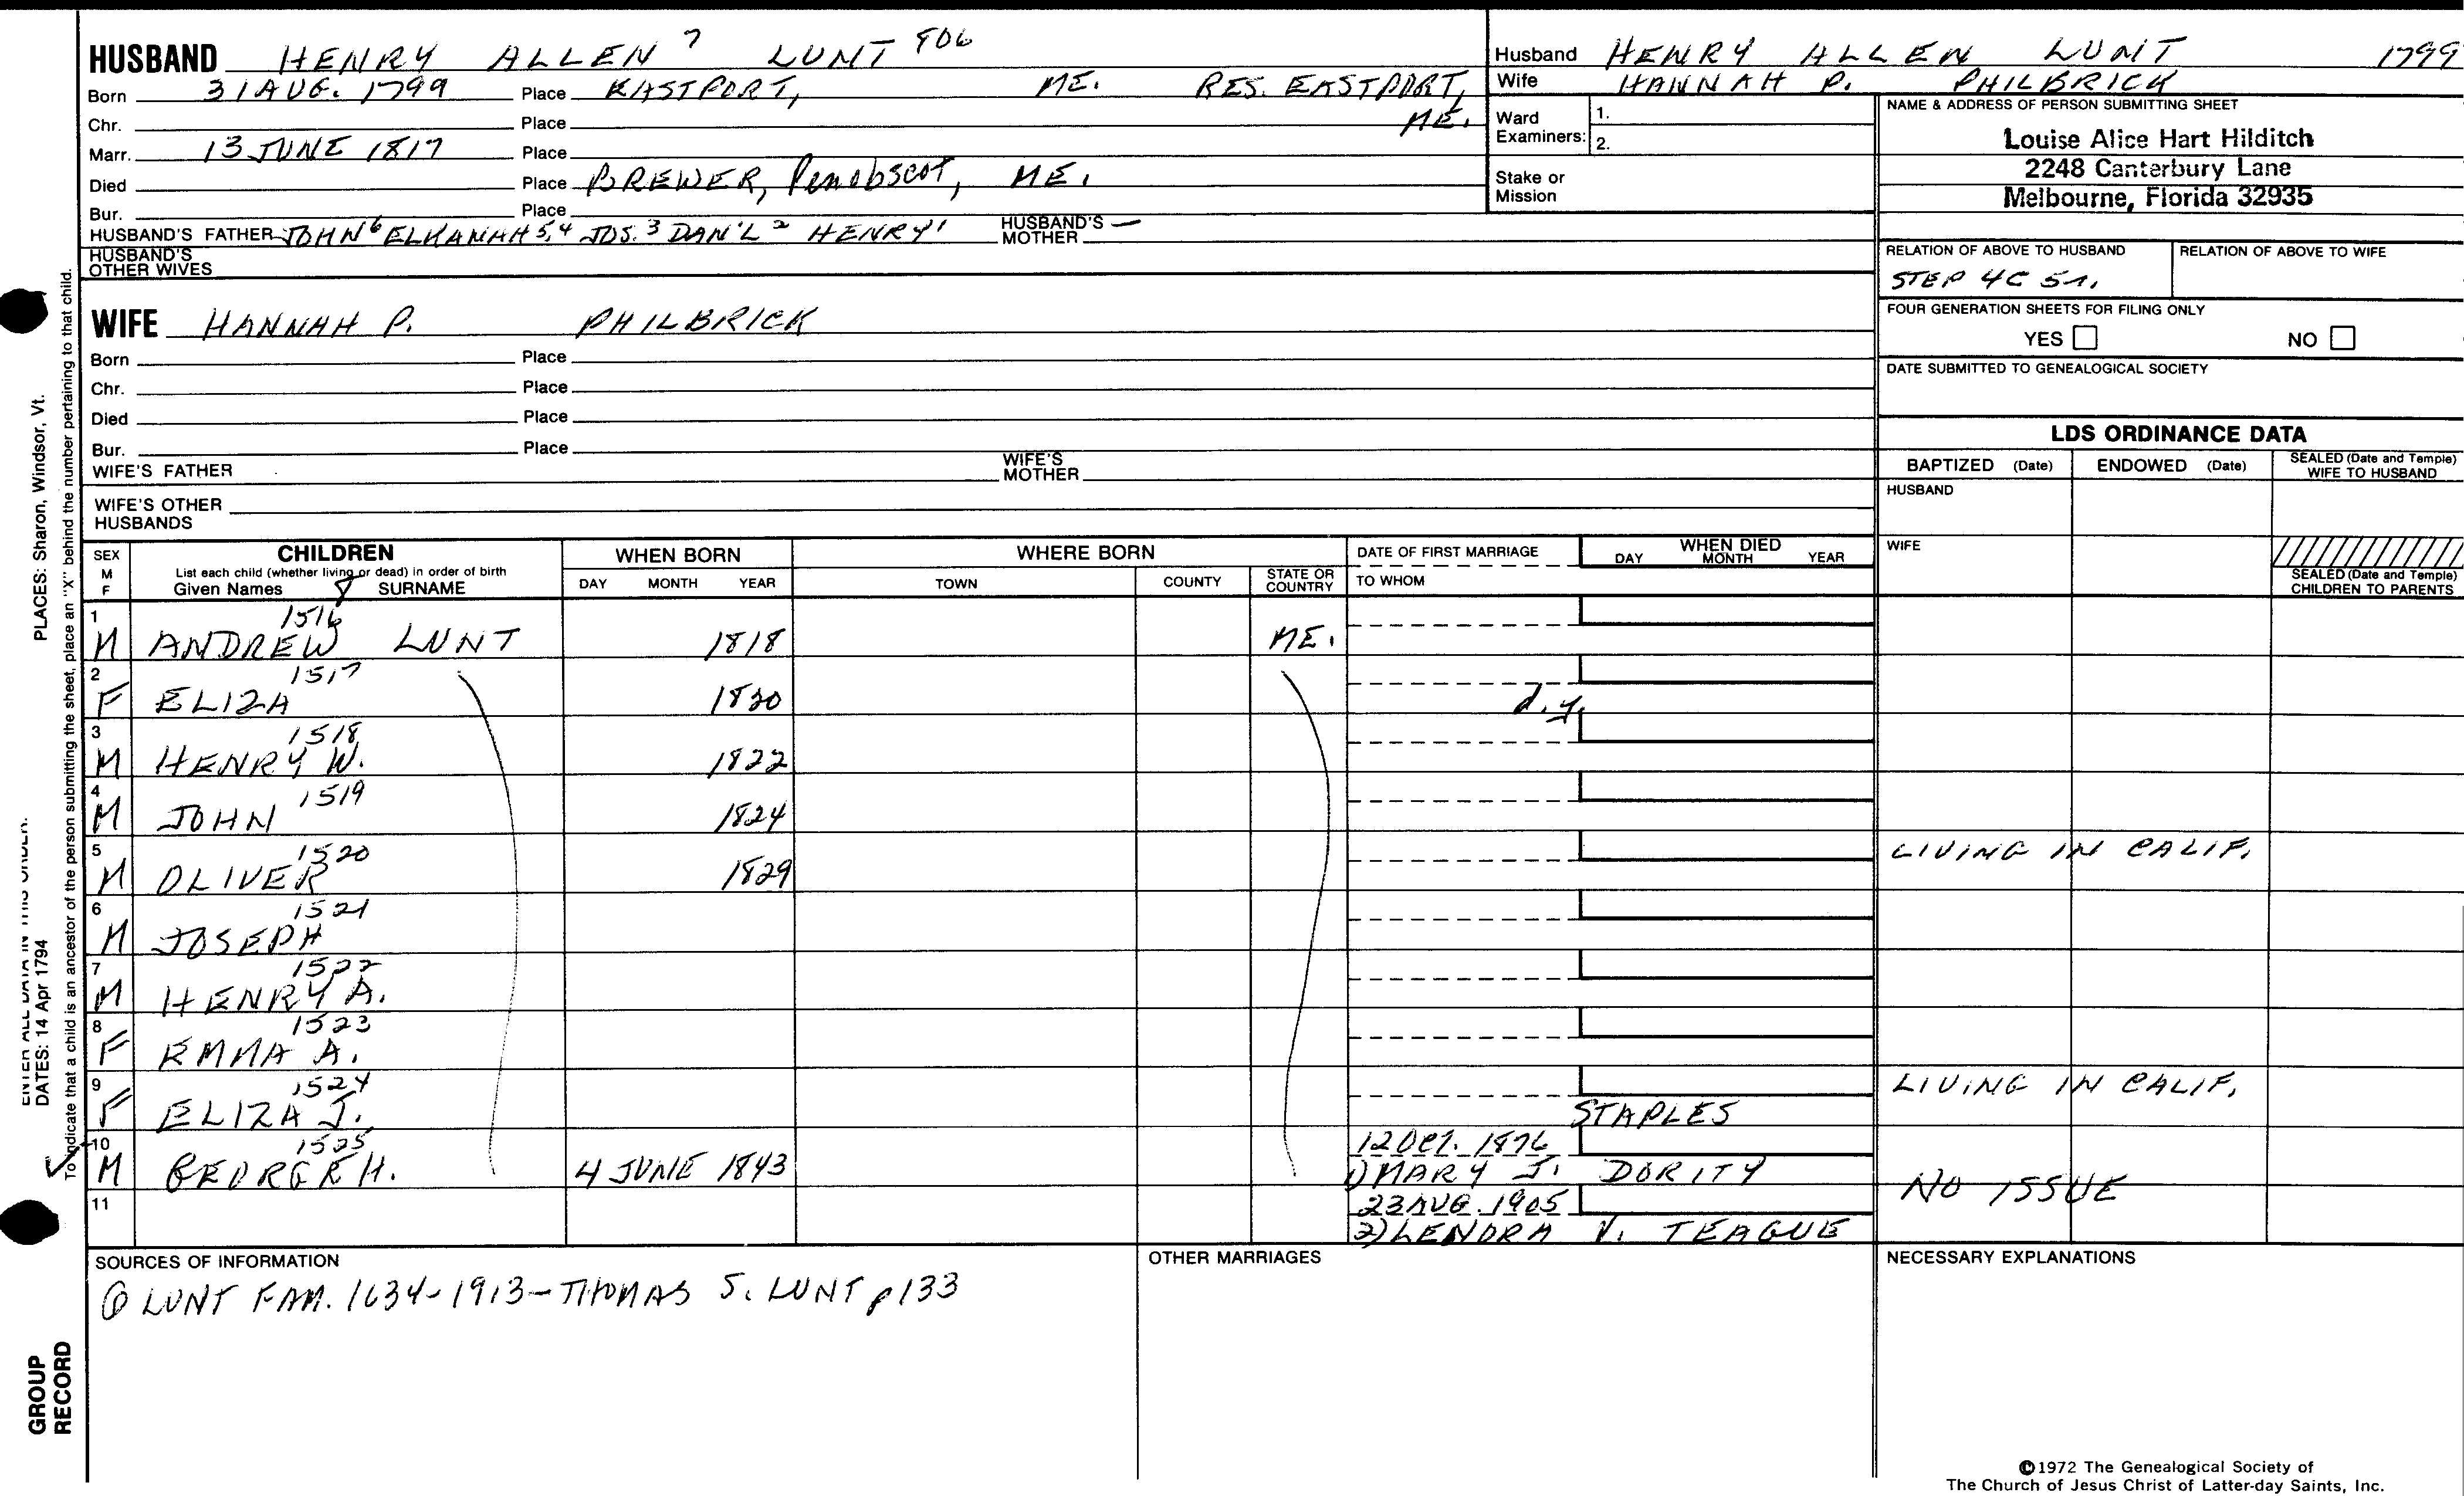 HUSBAND HENRY ALLEN 7 LUNT 906
Born 31 AUG. 1799 Place EASTPORT, ME. RES. EASTPORT, ME.
Chr. Place
Marr. 13 JUNE 1817 Place
Died Place BREWER, Penobscot, ME.
Bur. Place
HUSBAND'S FATHER JOHN 6 ELKANAH 5,4 JOS. 3 DAN'L 2 HENRY 1 HUSBAND'S MOTHER —
HUSBAND'S OTHER WIVES
WIFE HANNAH P. PHILBRICK
Born Place
Chr. Place
Died Place
Bur. Place
WIFE'S FATHER WIFE'S MOTHER
WIFE'S OTHER HUSBANDS
Husband HENRY ALLEN LUNT 1799
Wife HANNAH P. PHILBRICK
Ward Examiners: 1.
2.
Stake or Mission
NAME & ADDRESS OF PERSON SUBMITTING SHEET
Louise Alice Hart Hilditch
2248 Canterbury Lane
Melbourne, Florida 32935
RELATION OF ABOVE TO HUSBAND RELATION OF ABOVE TO WIFE
STEP 4C 5r.
FOUR GENERATION SHEETS FOR FILING ONLY
YES NO
DATE SUBMITTED TO GENEALOGICAL SOCIETY
LDS ORDINANCE DATA
BAPTIZED (Date) ENDOWED (Date) SEALED (Date and Temple) WIFE TO HUSBAND
HUSBAND
WIFE
SEALED (Date and Temple) CHILDREN TO PARENTS
SEX M F
CHILDREN
List each child (whether living or dead) in order of birth
Given Names 8 SURNAME
WHEN BORN
DAY MONTH YEAR
WHERE BORN
TOWN COUNTY STATE OR COUNTRY
DATE OF FIRST MARRIAGE
TO WHOM
WHEN DIED
DAY MONTH YEAR
1 1516
M ANDREW LUNT 1818 ME.
2 1517
F ELIZA 1820 d.y.
3 1518
M HENRY W. 1822
4 1519
M JOHN 1824
5 1520 LIVING IN CALIF.
M OLIVER 1829
6 1521
M JOSEPH
7 1522
M HENRY A.
8 1523
F EMMA A.
9 1524 LIVING IN CALIF.
F ELIZA J. STAPLES
10 1525 12 OCT. 1876
M GEORGE H. 4 JUNE 1843 1) MARY J. DORITY NO ISSUE
11 23 AUG. 1905
2) LENORA V. TEAGUE
SOURCES OF INFORMATION
① LUNT FAM. 1634-1913-THOMAS S. LUNT p133
OTHER MARRIAGES
NECESSARY EXPLANATIONS
©1972 The Genealogical Society of
The Church of Jesus Christ of Latter-day Saints, Inc.
PLACES: Sharon, Windsor, Vt.
DATES: 14 Apr 1794
To indicate that a child is an ancestor of the person submitting the sheet, place an "X" behind the number pertaining to that child.
GROUP RECORD